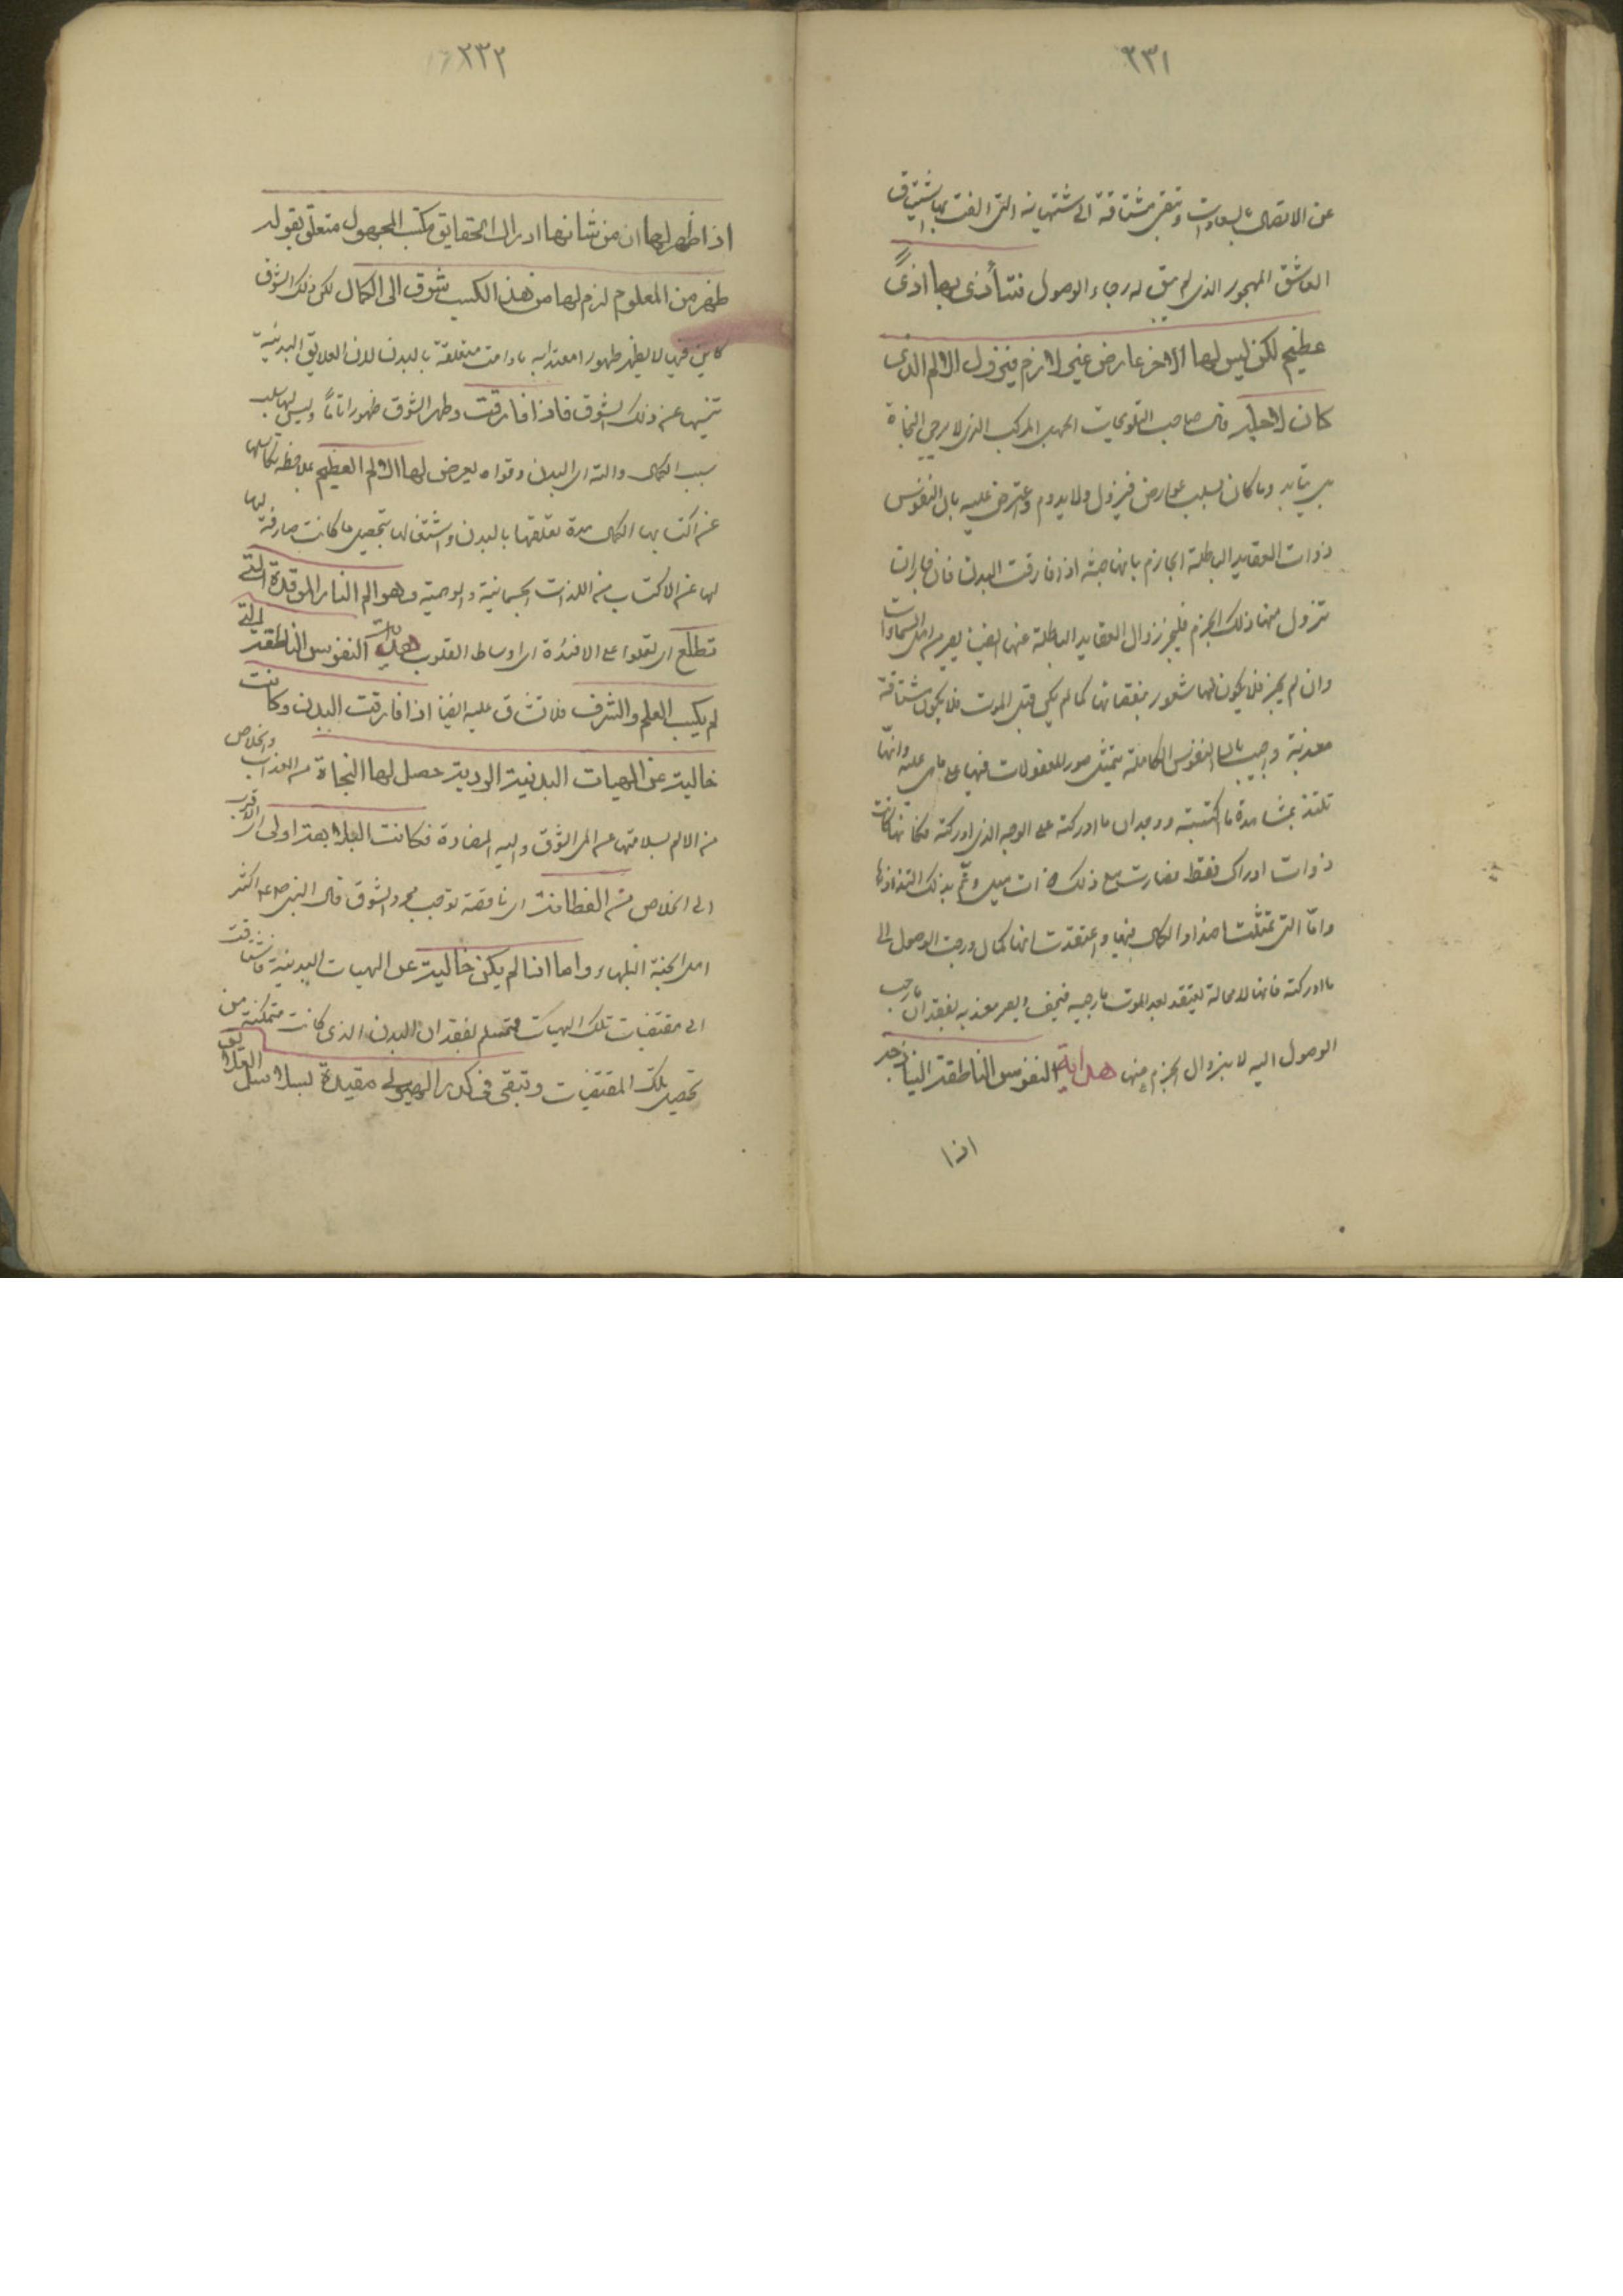 ٢٣١
عن الاتصال بالسعادات وتبقى مشتاقة الى مشتهياته التى الفت بها اشتياق
العاشق المهجور الذى لم يبق له رجاء الوصول فتتأذى بها اذىً
عظيم لكن ليس لها الاخر عارض غير لازم فيزول الالم الذى
كان لاجله قال صاحب التلويحات الجهل المركب الذى لا يرجى النجاة
بل يتأبد وما كان بسبب عوارض فيزول ولا يدوم واعترض عليه بان النفوس
ذوات العقايد الباطلة الجازم بانها حقة اذا فارقت البدن فان جاز ان
تزول منها ذلك الجزم فليجز زوال العقايد الباطلة عنها ايضا يصير من اهل السعادات
وان لم يجز فلا يكون لها شعور بنقصانها كما لم يكن قبل الموت فلا يكون مشتاقة
معذبة واجيب بان النفوس الكاملة يتمثل صور المعقولات فيها على ما هى عليه وانها
تلتذ بمشاهدة ما اكتسبته ووجدان ما ادركته على الوجه الذى ادركته فكانها كانت
ذوات ادراك فقط فصارت مع ذلك ذات نيل وتم بذلك التذاذها
واما التى تمثلت اضداد الكمال فيها واعتقدت انها كمال ورجت الوصول الى
ما ادركته فانها لا محالة يفتقد بعد الموت ما رجيه فيخيب ويصير معذبه بفقدان ما رجت
الوصول اليه لا بزوال الجزم عنها هداية النفوس الناطقة الساذجة
اذا
٢٣٢
اذا ظهر لها ان من شانها ادراك الحقايق بكسب المجهول متعلق بقوله
ظهر من المعلوم لزم لها من هذا الكسب شوق الى الكمال لكن ذلك الشوق
كاين فيها لا يظهر ظهورا معتدا به ما دامت متعلقة بالبدن لان العلايق البدنية
تنهيها عن ذلك الشوق فاذا فارقت وظهر الشوق ظهورا تاما وليس لها سبب
سبب الكمال والته اى البدن وقواه يعرض لها الالم العظيم بملاحظة تكاسلها
عن اكتسابها الكمال مدة تعلقها بالبدن واشتغالها بتحصيل ما كانت صارفة لها
لها عن الاكتساب من اللذات الجسمانية والوهمية وهو الم النار الموقدة التى
تطلع اى تعلوا على الافئدة اى اوساط القلوب هداية النفوس الناطقة التى
لم يكسب العلم والشرف فلا تشتاق عليه ايضا اذا فارقت البدن وكانت
خالية عن الهيات البدنية الردية حصل لها النجاة من العذاب والخلاص
من الالم لسلامتها عن الم الشوق واليه المضادة فكانت البلاهة اولى اى اقرب
الى الخلاص من الفطانة اى ناقصة توجب مجرد الشوق قال النبى صلعم اكثر
اهل الجنة البلهاء واما اذا لم يكن خالية عن الهيات البدنية فاشتاقت
الى مقتضيات تلك الهيات فتتالم بفقدان البدن الذى كانت متمكنة من
تحصيل تلك المقتضيات وتبقى فى كدر الهيولى مقيدة بسلاسل العلايق